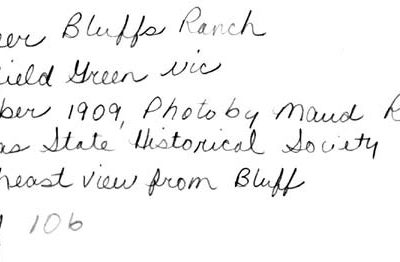 eer Bluffs Ranch
ield Green vic
ber 1909, Photo by Maud R
as State Historical Society
heast view from Bluff
106